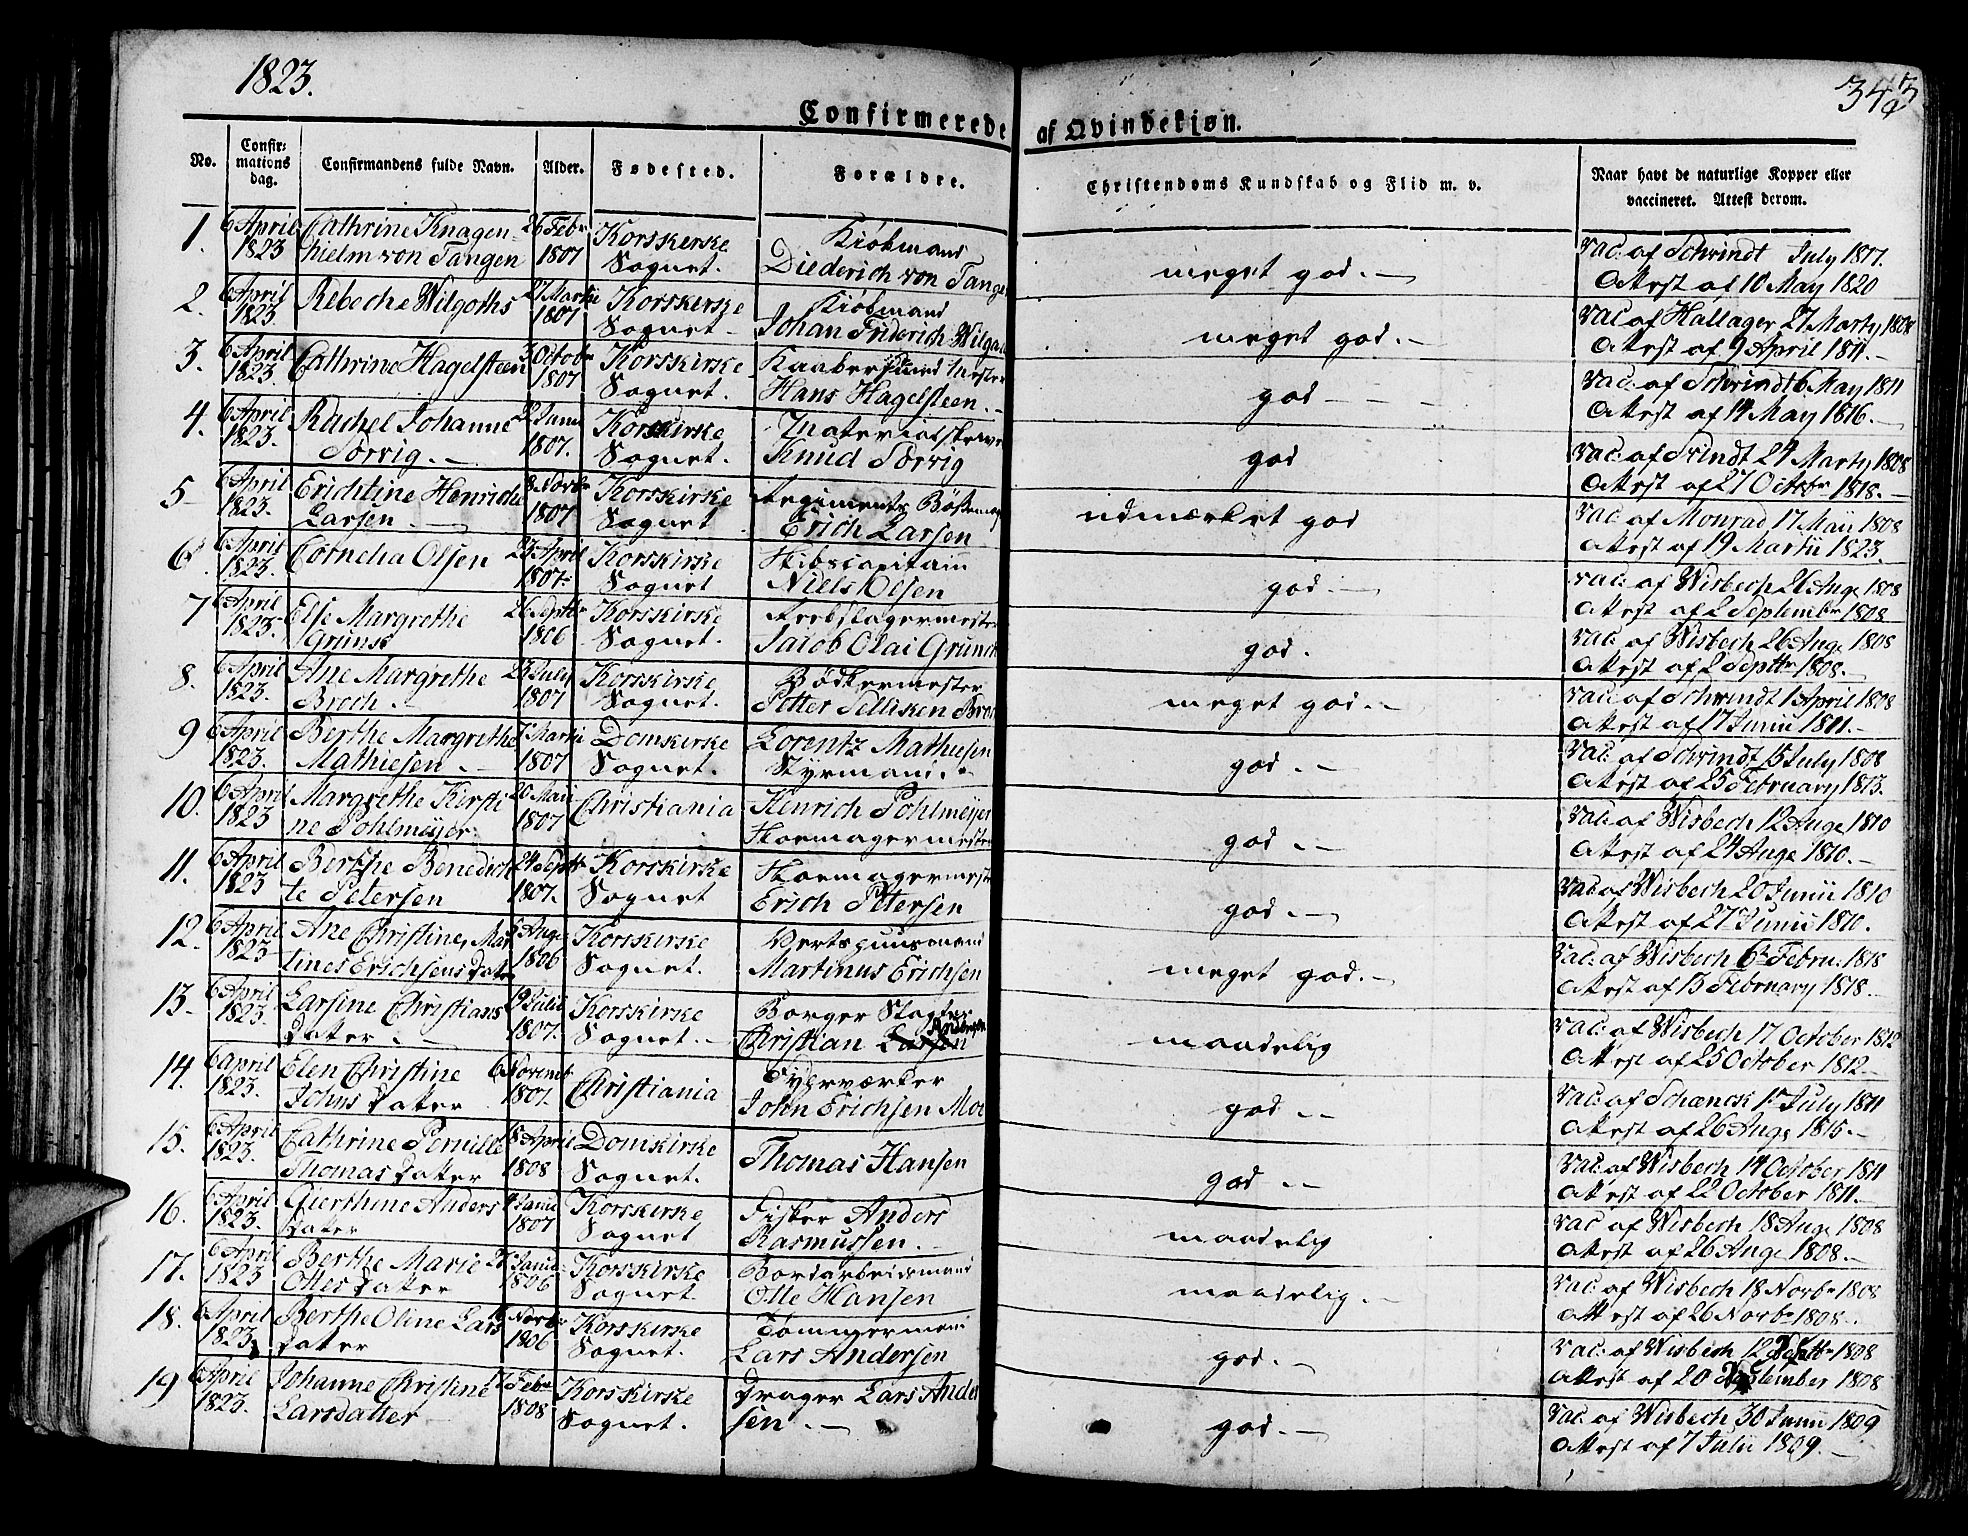 1823.
343
Confirmerede af Qvindekjøn.
No. Confirmations dag. Confirmandens fulde Navn. Alder. Fødested. Forældre. Christendoms Kundskab og Flid m. v. Naar havt de naturlige Kopper eller vaccineret. Attest derom.
1. 6 April Cathrine Knagen- 26 Febr Korskirke Kiøbmand vac: af Schvindt July 1811.
1823 hielm von Tangen 1807 Sognet. Diederich von Tangen meget god. Attest af 10 May 1820
2. 6 April Rebeche Wilgoths 27 Martii Korskirke Kiøbmand vac af Hallager 27 Marty 1808
1823. 1807 Sognet Johan Friderich Wilgoth meget god. Attest af 9 April 1811.
3. 6 April Cathrine Hagelsteen 3 Octobr Korskirke Kaabersmed mester vac: af Schvindt 6 May 1811
1823. 1807 Sognet. Hans Hagelsteen. god Attest af 14 May 1816.
4. 6 April Rachel Johanne Janu Korskirke Materialskriver vac: af Svindt 24 Marty 1808
1823. Torvig. 1807. Sognet. Knud Torvig god Attest af 27 Octobr 1818.
5 6 April Erichtine Henriche 8 Novbr Korskirke Regiments Bøssemager vac: af Monrad 17 Maii 1808
1823. Larsen. 1807 Sognet Erich Larsen udmærket god Attest af 19 Martii 1823.
6. 6 April Cornelia Olsen 23 April Korskirke Skibscapitain vac: af Wisbech 26 Auge 1808
1823. 1807 Sognet Niels Olsen god. Attest af 2 Septembr 1808
7 6 April Else Margrethe 26 Septbr Korskirke Rebslagermester vac: af Wisbech 26 Auge 1808
1823. Grunst 1806 Sognet. Jacob Olai Grunst god. Attest af 2 Septbr 1808.
8. 6 April Ane Margrethe 23 July Korskirke Bødkermester vac: af Schvindt 1 April 1808
1823. Broch. 1807 Sognet. Petter Tellisen Broch meget god. Attest af 17 Junii 1811.
9 6 April Berthe Margrethe Martii Domkirke Lorentz Mathiesen vac: af Schvindt 15 July 1808
1823. Mathiesen. 1807 Sognet. Styrmand. god. Attest af 25 February 1813.
10. 6 April Margrethe Kirsti 20 Maii Christiania Henrich Pohlmeijer vac: af Wisbech 12 Auge 1810
1823 ne Pohlmeijer. 1807 Skomagermester god. Attest af 24 Auge 1810.
11. 6 April Berthe Benedich 24 Septbr Korskirke Skomagermester vac af Wisbech 20 Junii 1810
1823 te Petersen 1807. Sognet Erich Petersen god. Attest af 27 Junii 1810.
12. 6 April Ane Christine, Mar Auge Korskirke Vertshuusmand vac: af Wisbech 6te Febru. 1818
1823 tines Erichsens Datter 1806 Sognet. Martinus Erichsen meget god. Attest af 15 February 1818.
13. 6 April Larsine Christians 9 Julii Korskirke Borger Slagter vac: af Wisbech 17 October 1812
1823. Datter. 1807. Sognet. Christian Larsen Andersen maadelig Attest af 25 October 1812.
14. 6 April Elen Christine Novembr Christiania Dyhrværker vac: af Schanck 1st July 1811
1823. Johns Datter 1807. John Erichsen Moe god Attest af 26 Auge 1815.
15. 6 April Cathrine Pernille 18 April Domkirke Thomas Hansen vac: af Wisbech 14 October 1811
1823. Thomas Datter 1808 Sognet. god Attest af 22 October 1811.
16. 6 April Gierthine Anders Janu Korskirke Fisker Anders vac af Wisbech 18 Auge 1808
1823. Datter 1807 Sognet Rasmussen. maadelig Attest af 26 Auge 1808.
17. 6 April Berthe Marie Janu Korskirke Bordarbeidsmand vac: af Wisbech 18 Novbr 1808
1823 Ottes Datter 1806 Sognet. Otte Hansen maadelig. Attest af 26 Novbr 1808.
18. 6 April Berthe Oline Lars Novbr Korskirke Tømmermand vac: af Wisbech 12 Septbr 1808
1823. Datter 1806 Sognet. Lars Andersen god. Attest af 20 September 1808
19 6 April Johanne Christine Febr Korskirke Drager Lars Ander vac: af Wisbech 30 Junii 1809
1823. Larsdatter 1808 Sognet. sen. god. Attest af 7 Julii 1809.